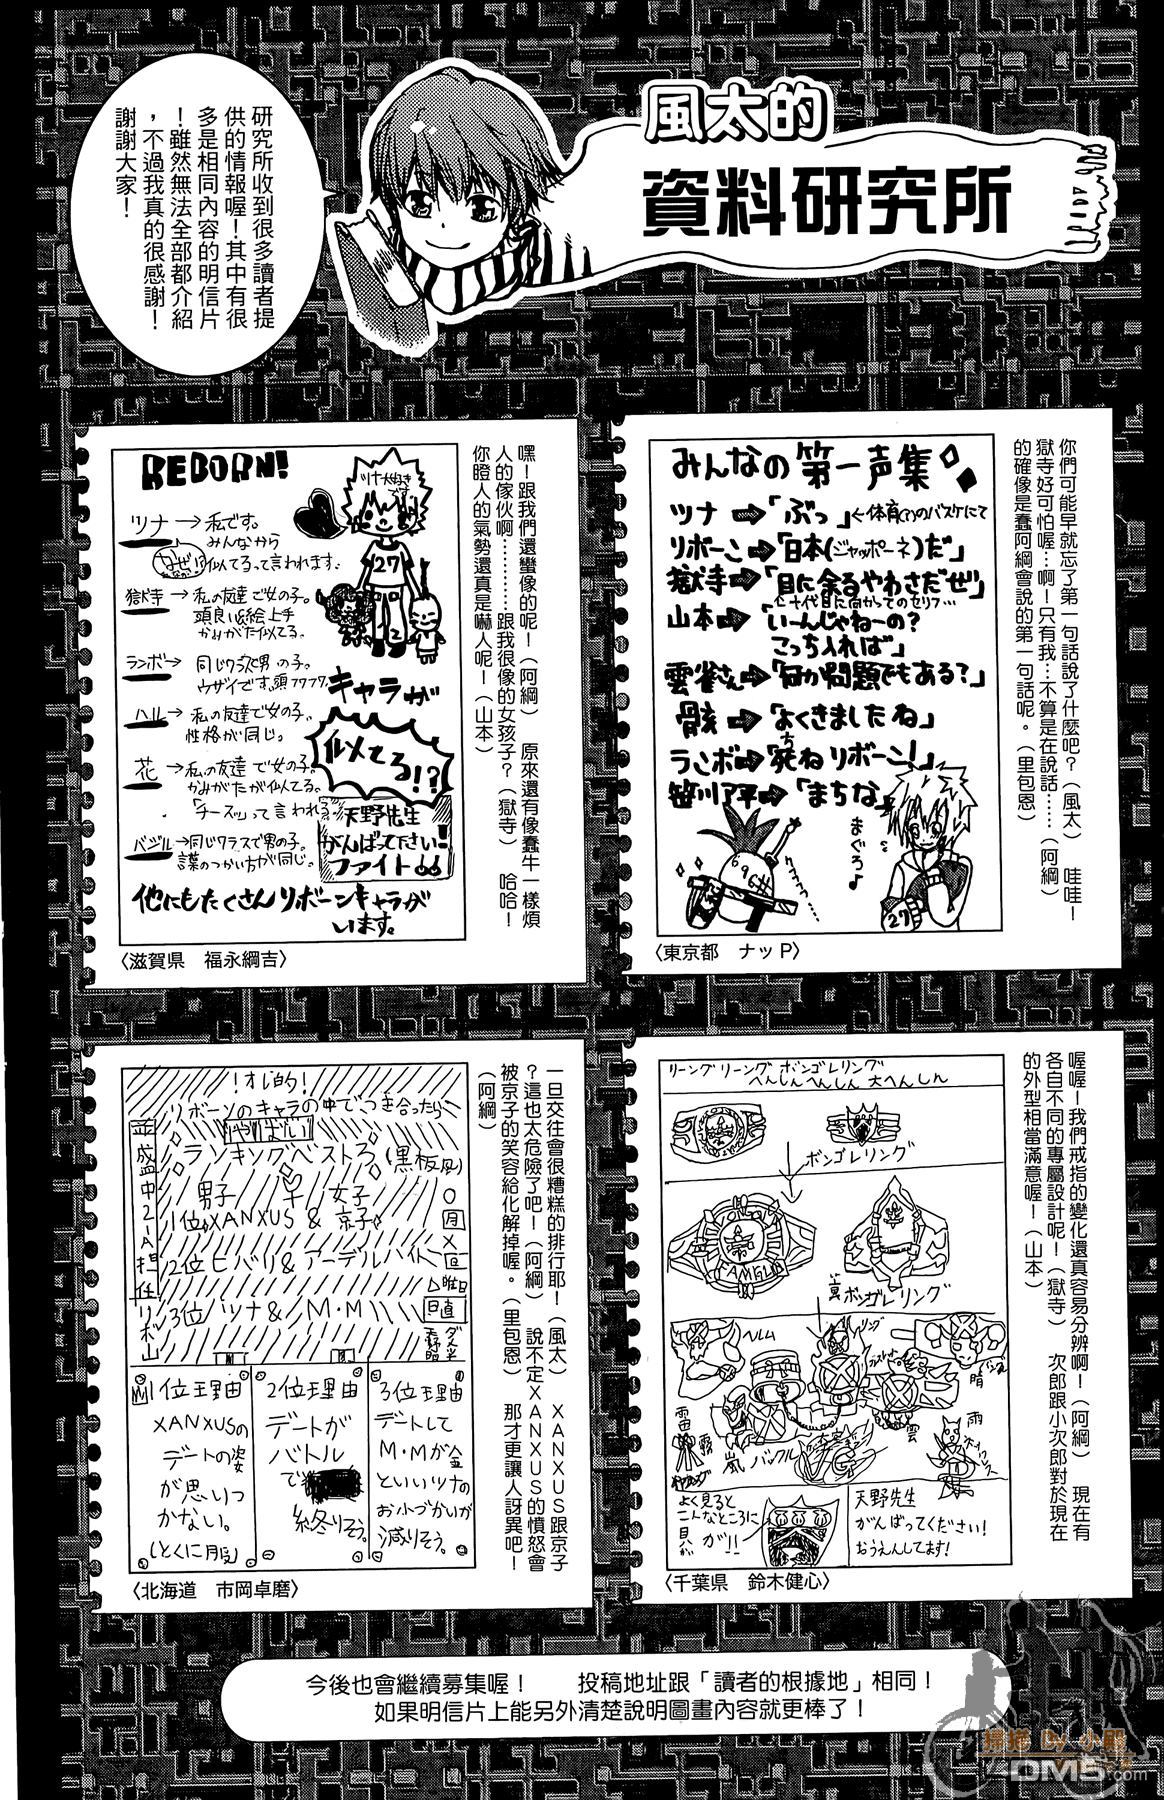 風太的
資料研究所
研究所收到很多讀者提
供的情報喔！其中有很
多是相同內容的明信片
！雖然無法全部都介紹
，不過我真的很感謝！
謝謝大家！
你們可能早就忘了第一句話說了什麼吧？（風太）　哇哇！
獄寺好可怕喔…啊！只有我…不算是在說話……（阿綱）
的確像是蠢阿綱會說的第一句話呢。（里包恩）
みんなの第一声集
ツナ→「ぶっ」←体育(?)のバスケにて
リボーン→「日本(ジャッポーネ)だ」
獄寺→「目に余るやわさだぜ」
←十代目に向かってのセリフ…
山本→「いーんじゃねーの？
こっち入れば」
雲雀さん→「何か問題でもある？」
骸→「よくきましたね」
ランボ→「死ねリボーン！」
笹川了平→「まちな」
まぐろ♪
696
27
〈東京都　ナッP〉
嘿！跟我們還蠻像的呢！（阿綱）　原來還有像蠢牛一樣煩
人的傢伙啊…………跟我很像的女孩子？（獄寺）　哈哈！
你瞪人的氣勢還真是嚇人呢！（山本）
REBORN!
ツナ→私です。
みんなから
なぜ!? 似てるって言われます。
獄寺→私の友達で女の子。
頭良い＆絵上手
かみがた似てる。
ランボ→同じクラスで男の子。
ウザイです。頭フワフワ。
ハル→私の友達で女の子。
性格が同じ。
花→私の友達で女の子。
かみがたが似てる。
「チーズ」って言われる
バジル→同じクラスで男の子。
言葉のつかい方が同じ。
他にもたくさんリボーンキャラが
います。
ツナ大好き
です
27
キャラが
似てる!?
天野先生
がんばってださい！
ファイト
〈滋賀県　福永綱吉〉
喔喔！我們戒指的變化還真容易分辨啊！（阿綱）　現在有
各自不同的專屬設計呢！（獄寺）　次郎跟小次郎對於現在
的外型相當滿意喔！（山本）
リーングリーング ボンゴレリング
へんしんへんしん 大へんしん
ボンゴレリング
FAMIGLIA
真ボンゴレリング
ヘルム
リング
晴
雨
雲
雷
霧
嵐
バックル
よく見ると
こんなところに
貝が
が!!
天野先生
がんばってください！
おうえんしてます！
〈千葉県　鈴木健心〉
一旦交往會很糟糕的排行耶！（風太）　XANXUS跟京子
？這也太危險了吧！（阿綱）　說不定XANXUS的憤怒會
被京子的笑容給化解掉喔。（里包恩）　那才更讓人訝異吧！
（阿綱）
！オレ的！
リボーンのキャラの中でつき合ったら
やばい
ランキングベスト3（黒板風）
男子　女子
1位 XANXUS & 京子
2位 ヒバリ & アーデルハイト
3位 ツナ & M・M
並盛中2-A担任
リボ山
○月
×日
△曜日
日直
1位理由
XANXUSの
デートの姿
が思いつ
かない。
（とくに服）
2位理由
デートが
バトル
で
終りそう。
3位理由
デートして
M・Mが金
といいツナの
おこづかいが
減りそう。
〈北海道　市岡卓磨〉
今後也會繼續募集喔！　投稿地址跟「讀者的根據地」相同！
如果明信片上能另外清楚說明圖畫內容就更棒了！
掃描 By 小鄭
DM5.com